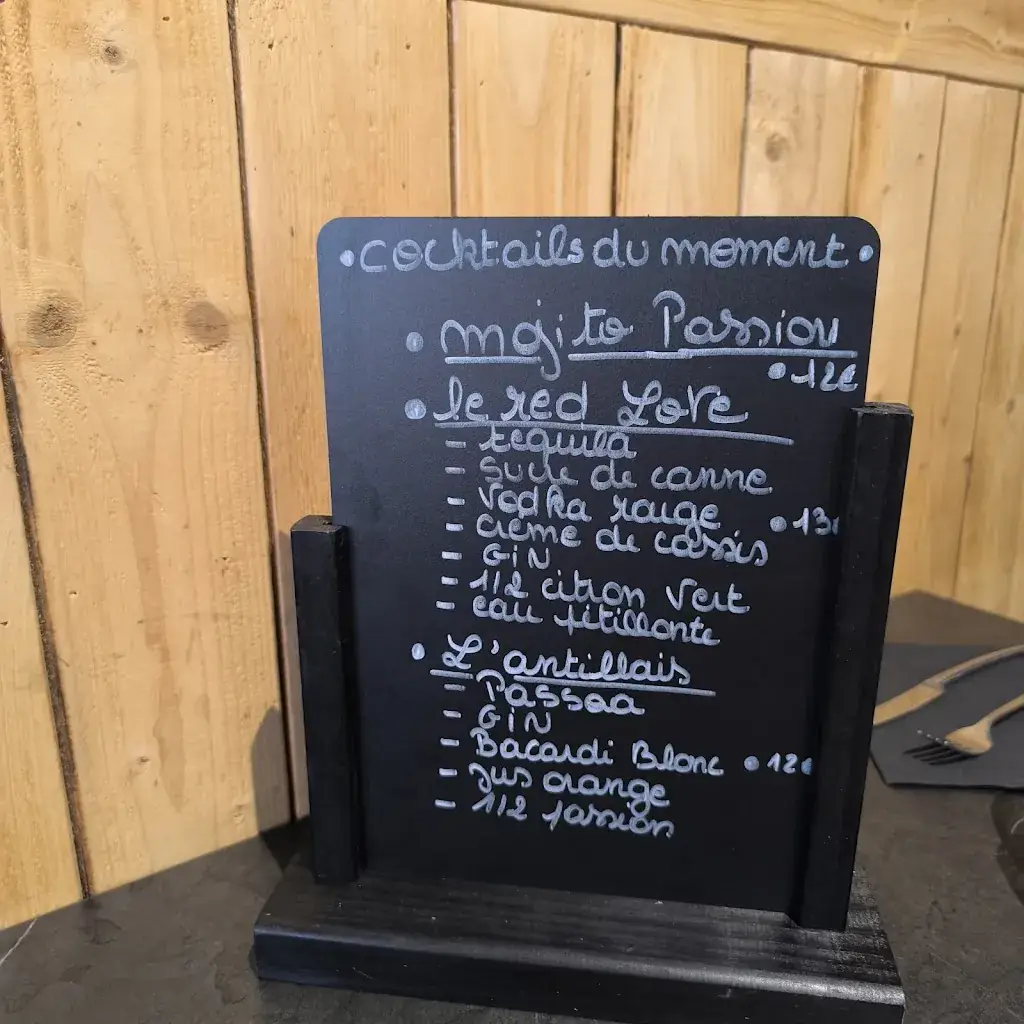 • cocktails du moment •
• mojito Passion
• 12€
• le red Love
- tequila
- sucre de canne
- vodka rouge • 13€
- crème de cassis
- GIN
- 1/2 citron vert
- eau pétillante
• L'antillais
- Passoa
- GIN
- Bacardi Blanc • 12€
- Jus orange
- 1/2 passion